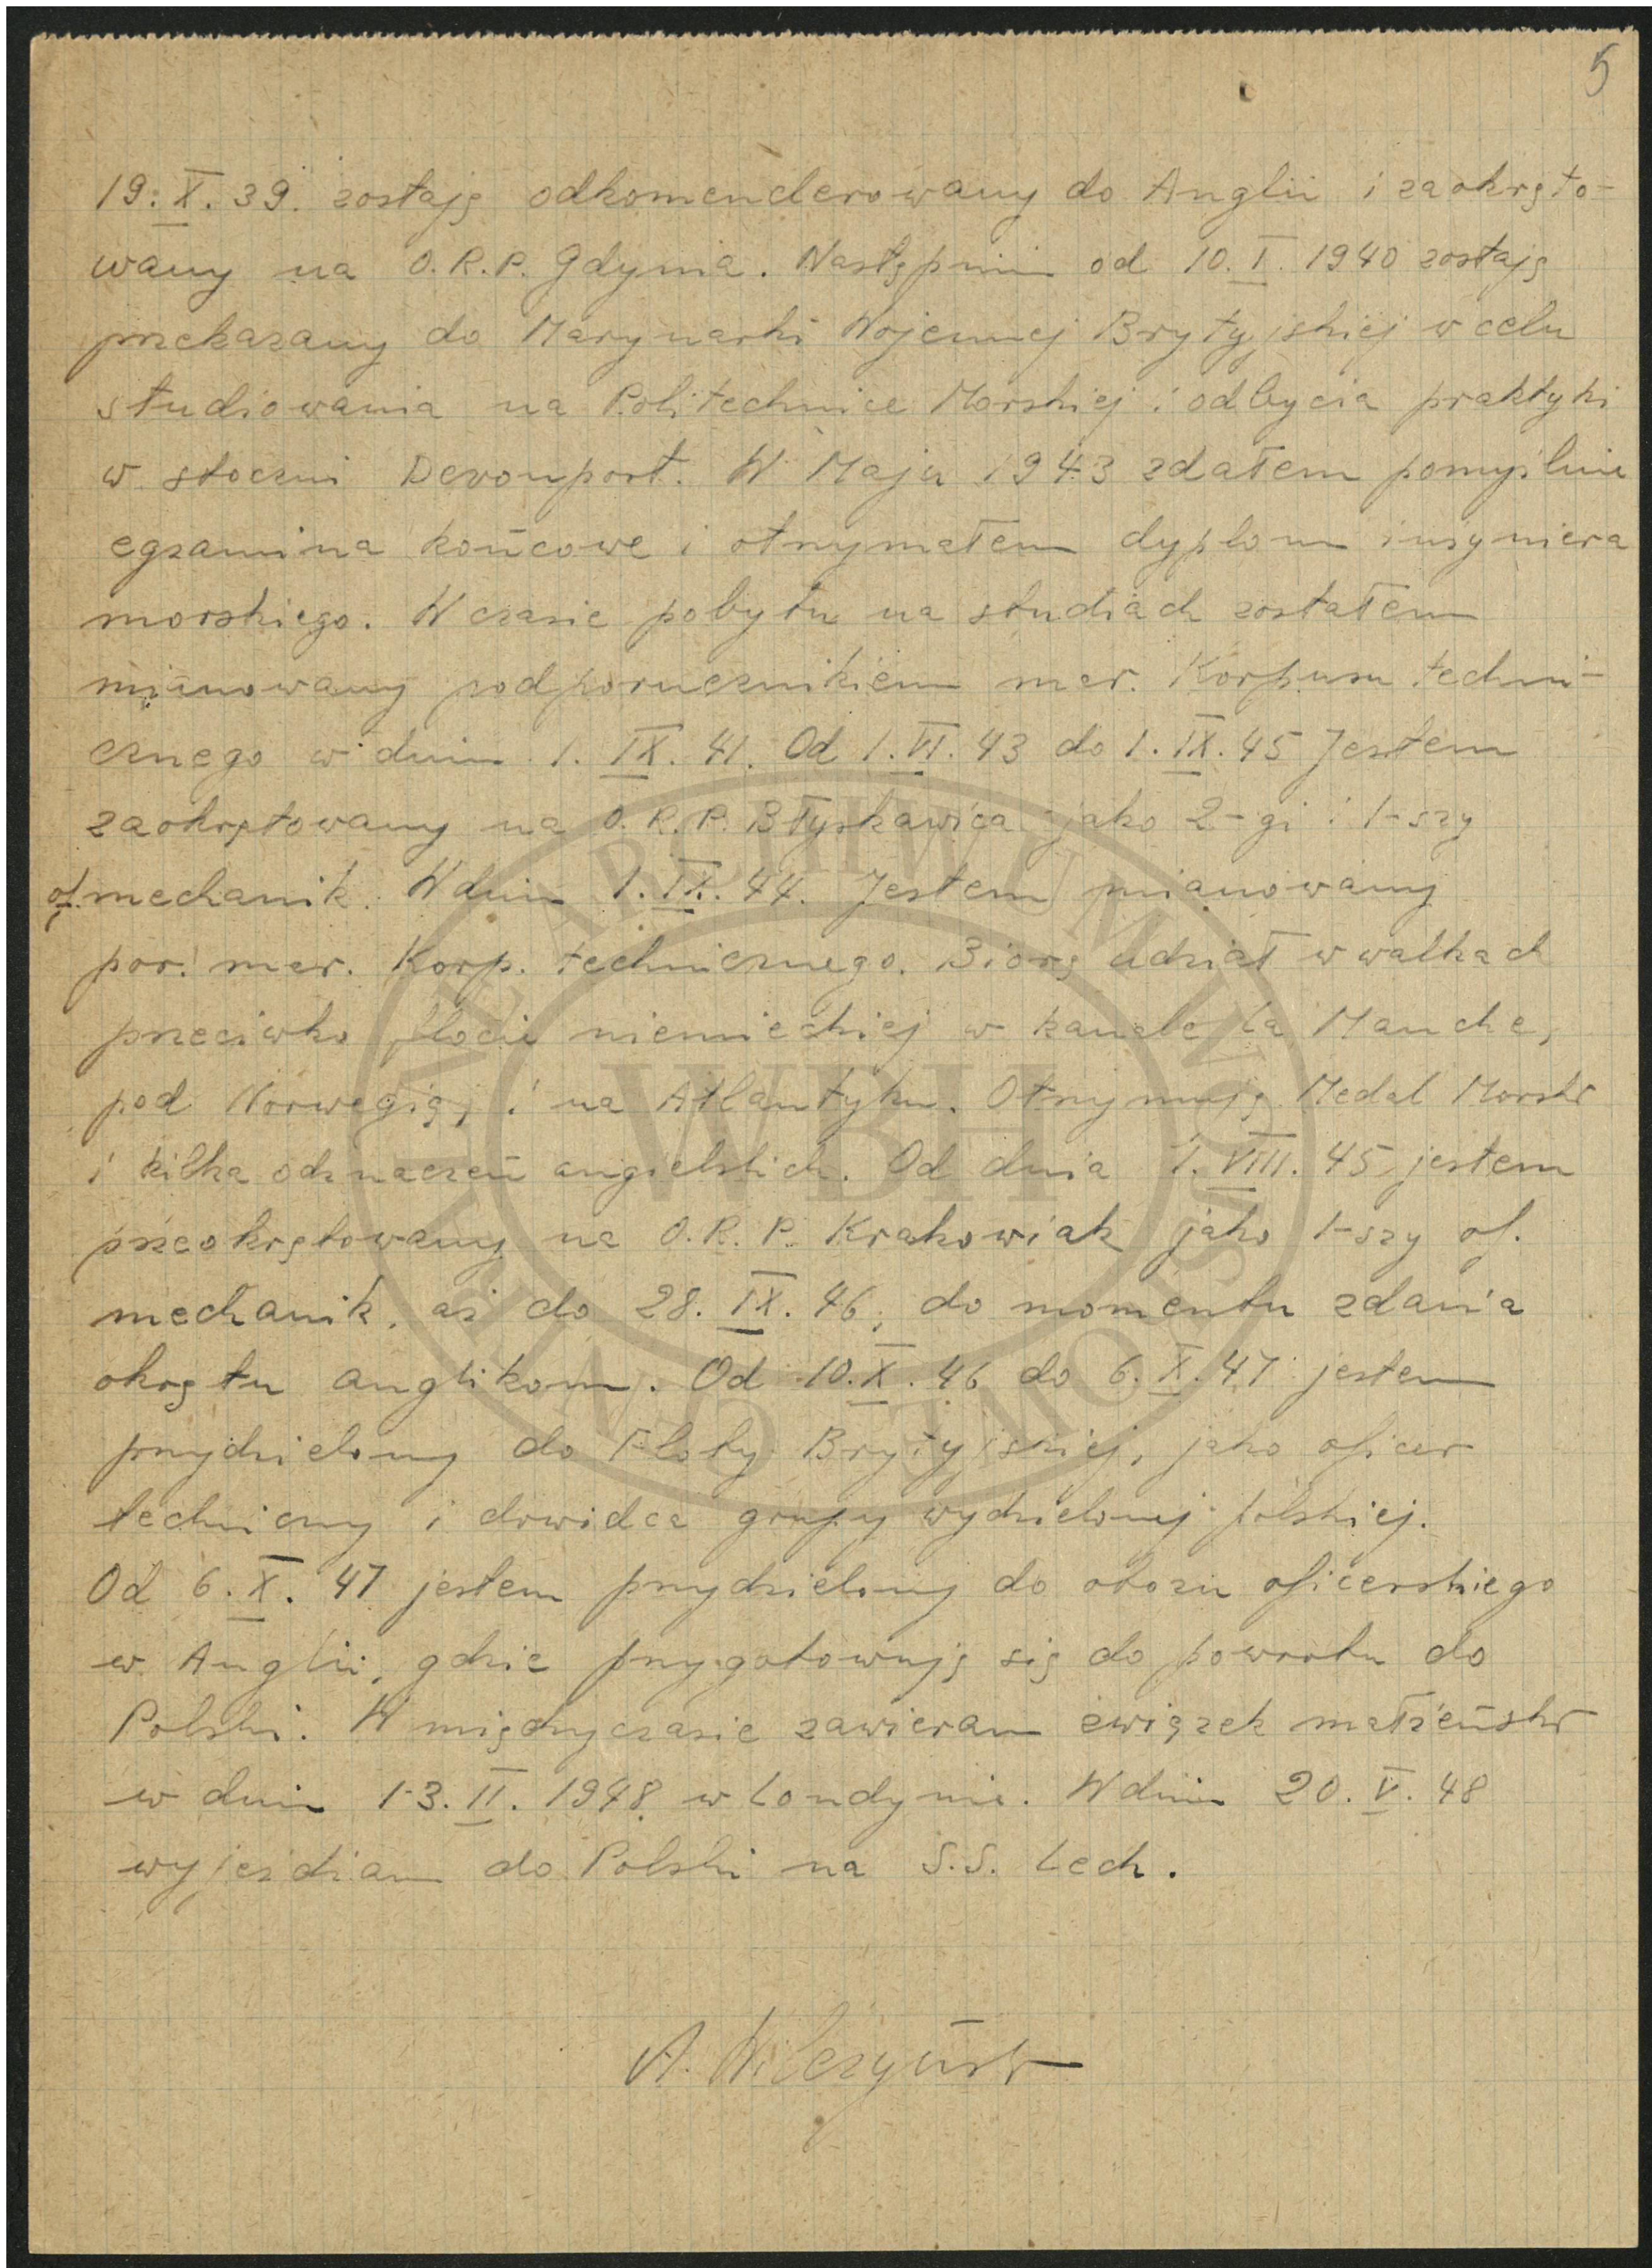 5
19.X.39. zostaję odkomenderowany do Anglii i zaokręto-
wany na O.R.P. Gdynia. Następnie od 10.I.1940 zostaję
przekazany do Marynarki Wojennej Brytyjskiej w celu
studiowania na Politechnice Morskiej i odbycia praktyki
w stoczni Devonport. W Maju 1943 zdałem pomyślnie
egzamina końcowe i otrzymałem dyplom inżyniera
morskiego. W czasie pobytu na studiach zostałem
mianowany podporucznikiem mar. Korpusu techni-
cznego w dniu 1.IX.41. Od 1.VI.43 do 1.IX.45 Jestem
zaokrętowany na O.R.P. Błyskawica jako 2-gi i 1-szy
of. mechanik. W dniu 1.IX.44. Jestem mianowany
por. mar. Korp. technicznego. Biorę udział w walkach
przeciwko flocie niemieckiej w kanale La Manche,
pod Norwegią, i na Atlantyku. Otrzymuję Medal Morski
i kilka odznaczeń angielskich. Od dnia 1.VIII.45 jestem
przeokrętowany na O.R.P. Krakowiak jako 1-szy of.
mechanik, aż do 28.IX.46, do momentu zdania
okrętu anglikom. Od 10.X.46 do 6.X.47 jestem
przydzielony do Floty Brytyjskiej, jako oficer
techniczny i dowódca grupy wydzielonej polskiej.
Od 6.X.47 jestem przydzielony do obozu oficerskiego
w Anglii, gdzie przygotowuję się do powrotu do
Polski. W międzyczasie zawieram związek małżeński
w dniu 13.II.1948 w Londynie. W dniu 20.V.48
wyjeżdżam do Polski na S.S. Lech.
A. Wilczyński
WBH